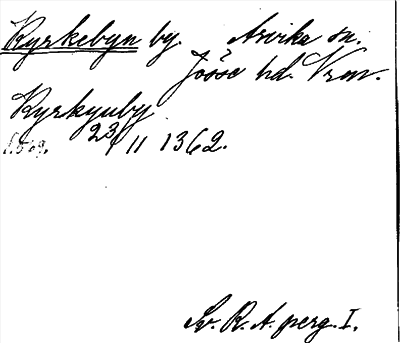 Kyrkebyn by Arvika sn.
Jösse hd. Vrm.
Kyrkyuby
23/11 1362.
Sv. R. A. perg. I.